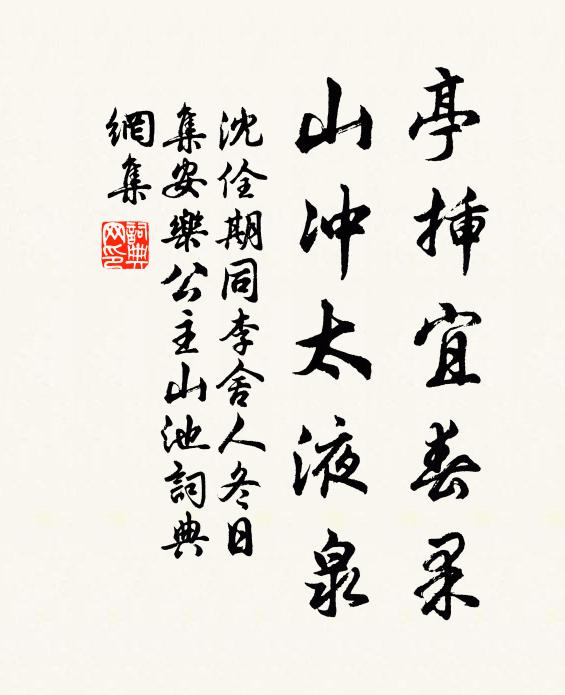 亭挿宜春果
山冲太液泉
沈佺期同李舍人冬日
集安樂公主山池詞典
網集
詞典
网印